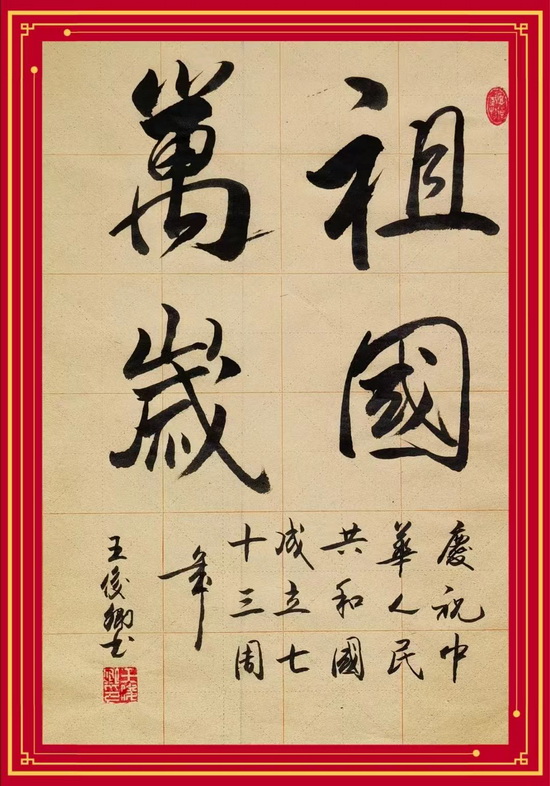 祖國
萬歲
慶祝中
華人民
共和國
成立七
十三周
年
王俊卿书